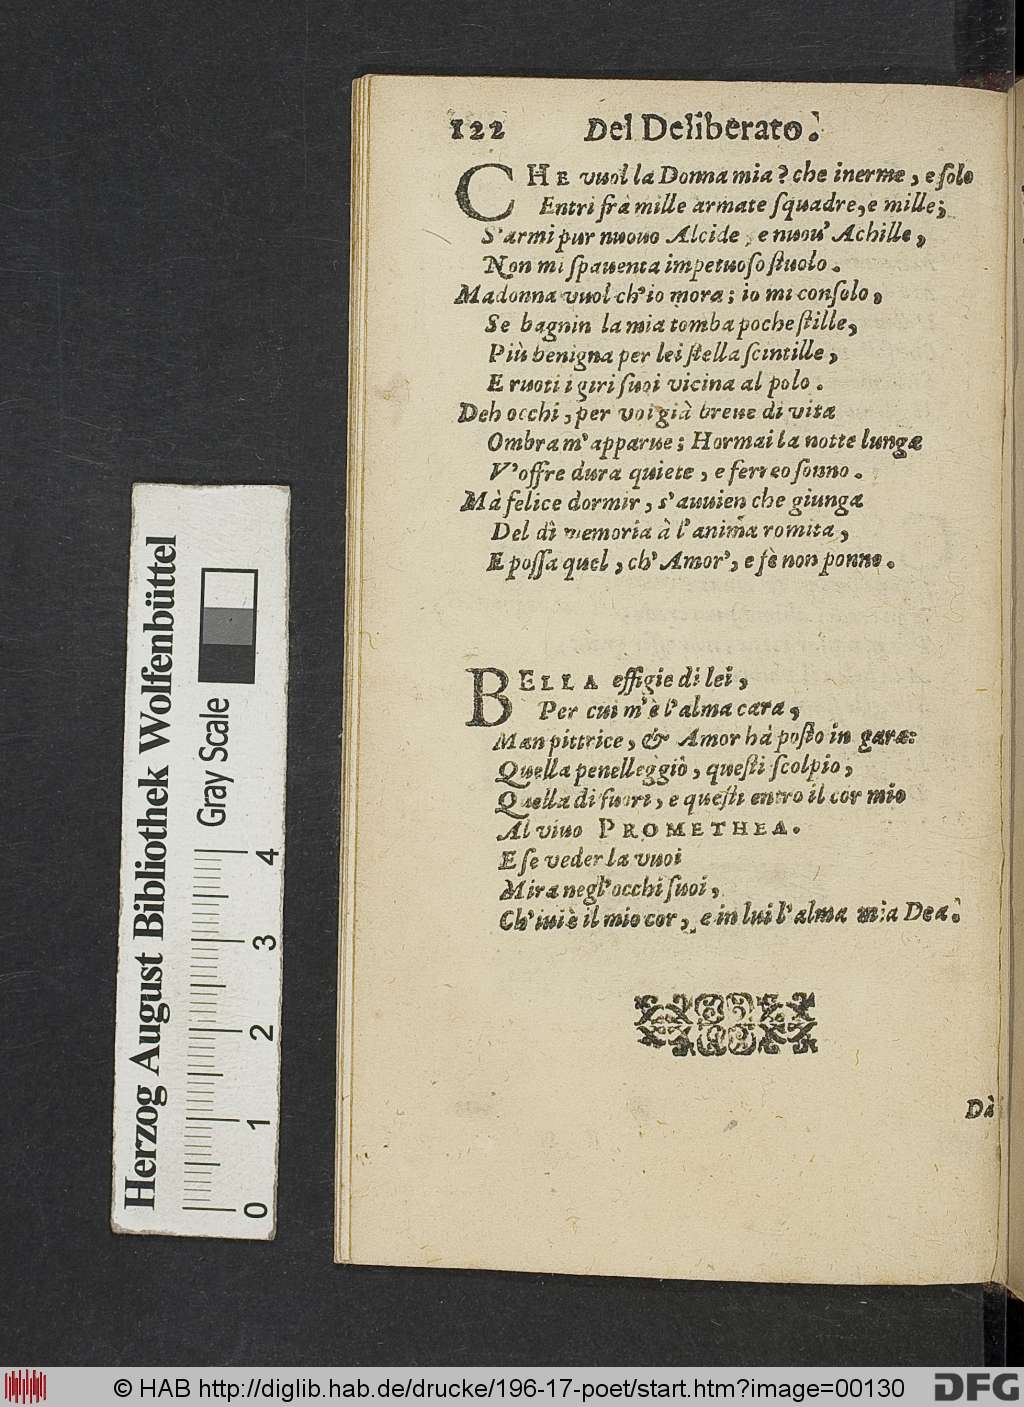 122 Del Deliberato.
CHE vuol la Donna mia? che inerme, e solo
Entri frà mille armate squadre, e mille;
S'armi pur nuouo Alcide, e nuou' Achille,
Non mi spauenta impetuoso stuolo.
Madonna vuol ch'io mora; io mi consolo,
Se bagnin la mia tomba poche stille,
Più benigna per lei stella scintille,
E ruoti i giri suoi vicina al polo.
Deh occhi, per voi già breue di vita
Ombra m'apparue; Hormai la notte lunga
V'offre dura quiete, e ferreo sonno.
Mà felice dormir, s'auuien che giunga
Del dì memoria à l'anima romita,
E possa quel, ch'Amor', e fè non ponno.
BELLA effigie di lei,
Per cui m'è l'alma cara,
Man pittrice, & Amor hà posto in gara:
Quella penelleggiò, questi scolpio,
Quella di fuori, e questi entro il cor mio
Al viuo PROMETHEA.
E se veder la vuoi
Mira negl'occhi suoi,
Ch'iui è il mio cor, e in lui l'alma mia Dea.
Dà
Herzog August Bibliothek Wolfenbüttel
Gray Scale
0 1 2 3 4
© HAB http://diglib.hab.de/drucke/196-17-poet/start.htm?image=00130
DFG